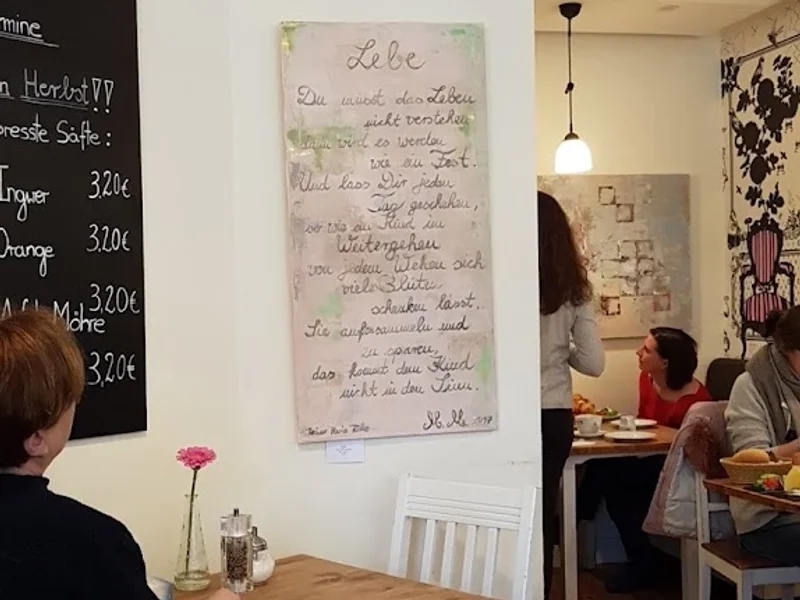 mine
n Herbst!!
presste Säfte:
Ingwer 3,20€
Orange 3,20€
Möhre 3,20€
3,20€
Lebe
Du musst das Leben
nicht verstehen
dann wird es werden
wie ein Fest.
Und lass Dir jeden
Tag geschehen,
so wie ein Kind im
Weitergehen
von jedem Wehen sich
viele Blüten
schenken lässt.
Sie aufzusammeln und
zu sparen,
das kommt dem Kind
nicht in den Sinn.
Rainer Maria Rilke